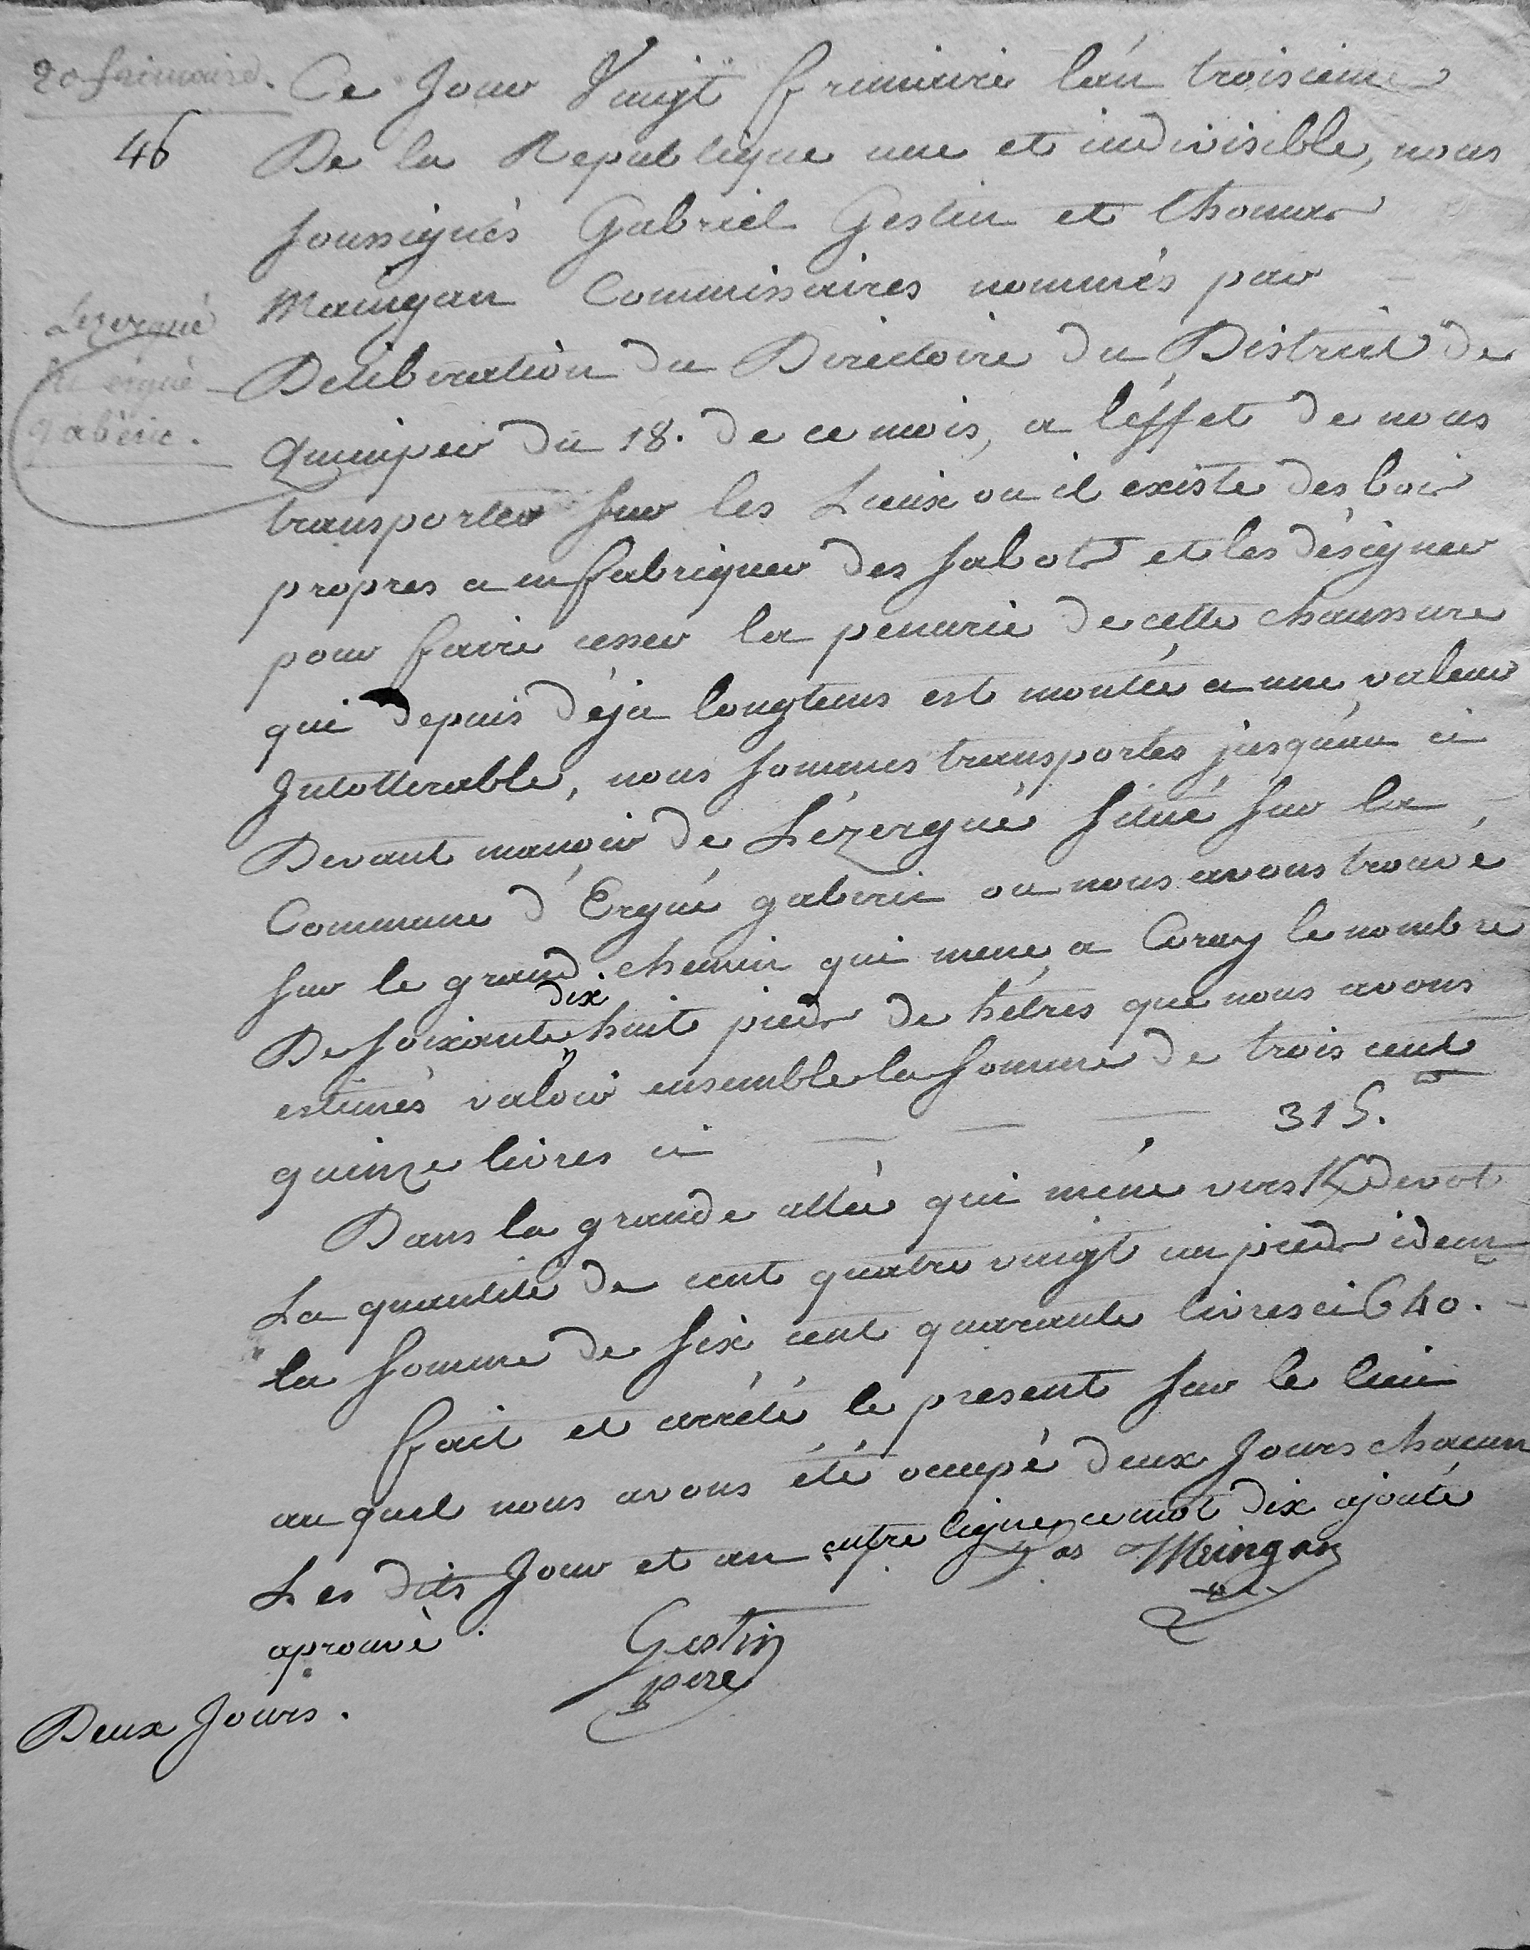 20 frimaire.
46
Ce Jour Vingt frimaire l'an troisieme
De la Republique une et indivisible, nous
soussignés Gabriel Gestin et thomas
Maingan Commissaires nommés par
Deliberation du Directoire du District de
quimper du 18. de ce mois, a l'éffet de nous
transporter sur les Lieux ou il existe des bois
propres a en fabriquer des sabots et les désigner
pour faire cesser la penurie de cette chaussure
qui depuis déja longtems est montée a une valeur
Intollerable, nous sommes transportes jusqu'au ci
Devant manoir de Lézergué situé sur la
Commune d'Ergué gaberic ou nous avons trouvé
sur le grand chemin qui mene a Coray le nombre
dix
De soixante huit pieds de hêtres que nous avons
estimés valoir ensemble la somme de trois cent
quinze livres ci 315.
Dans la grande allée qui méne vers Kdevot
La quantité de cent quatre vingt un pieds idem
la somme de six cent quarante livres ci 640.
fait et arrété le present sur le lieu
au quel nous avons été occupé deux Jours chacun
Les dits Jour et an entre ligne ce mot dix ajouté
aprouvé.
Meingan
Gestin
pere
Lezergué
en ergué
gaberic.
Deux Jours.